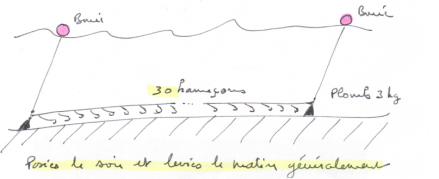 Bouée
Bouée
30 hameçons
Plomb 3 kg
Posées le soir et levées le matin généralement